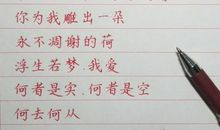 你为我雕出一朵
永不凋谢的荷
浮生若梦.我爱
何者是实.何者是空
何去何从